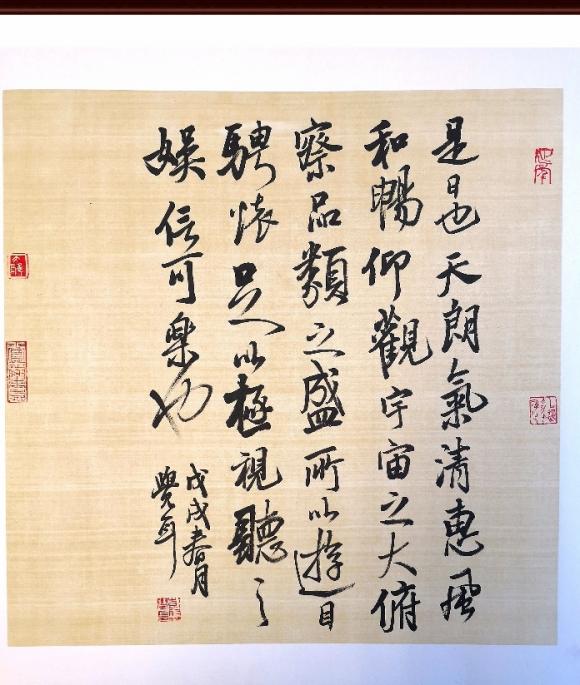 是日也天朗氣清惠風
和暢仰觀宇宙之大俯
察品類之盛所以遊目
騁懷足以極視聽之
娛信可樂也
戊戌春月
覺年